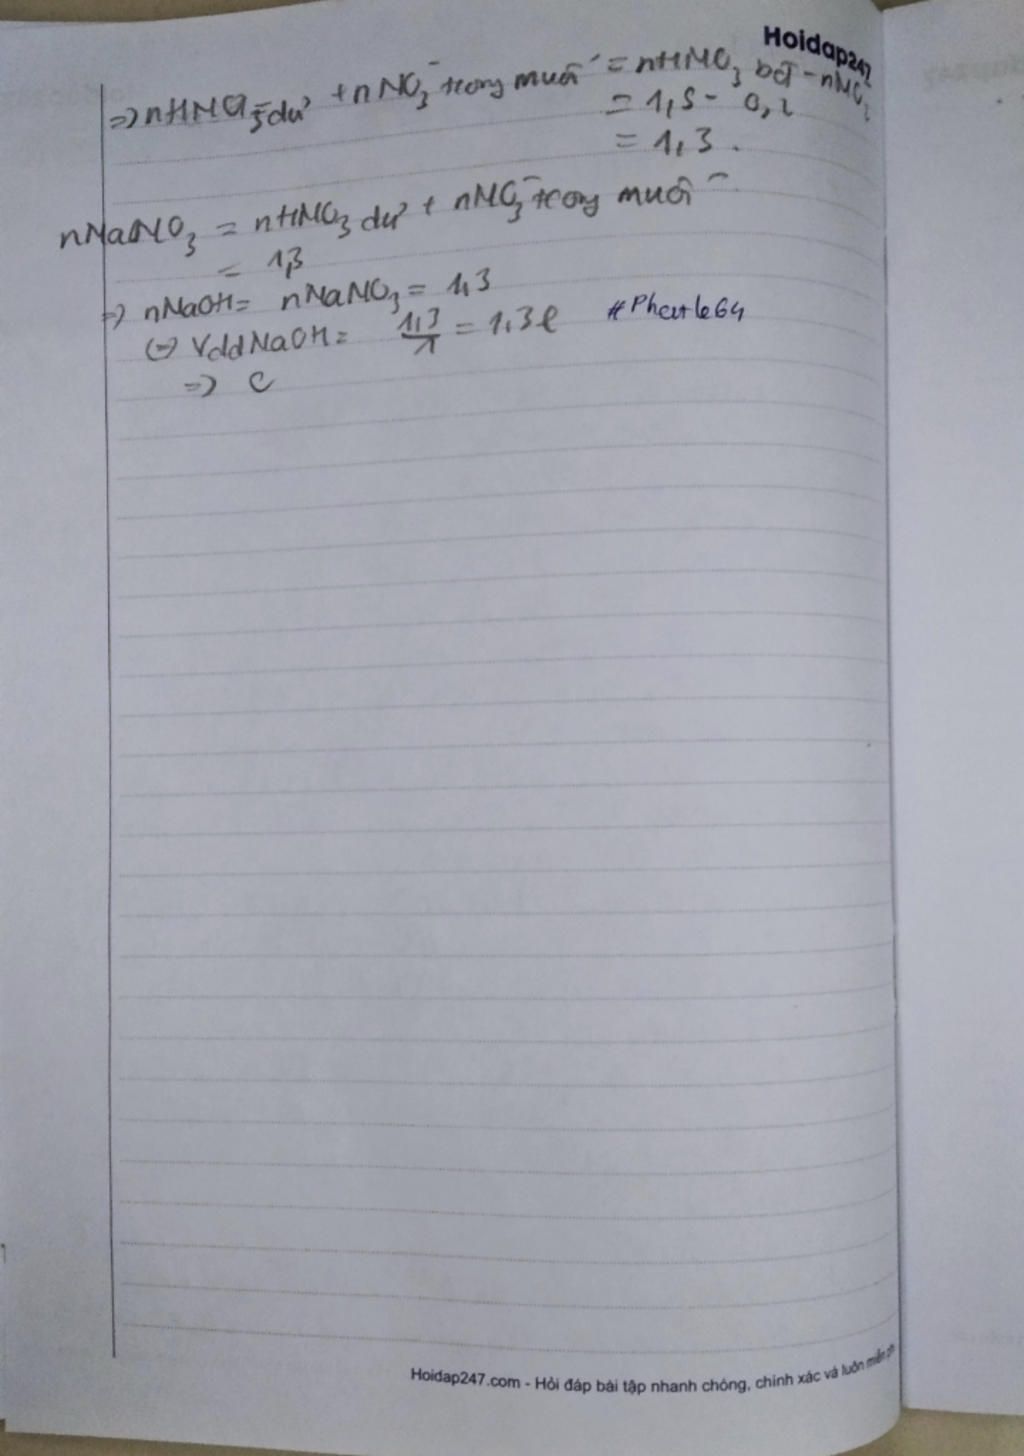 Hoidap247
=> nHNO3 dư + nNO3⁻ trong muối = nHNO3 bđ - nNO2
= 1,5 - 0,2
= 1,3.
nNaNO3 = nHNO3 dư + nNO3⁻ trong muối
= 1,3
=> nNaOH = nNaNO3 = 1,3
(=) VddNaOH = 1,3/1 = 1,3l #Phatle64
=> C
Hoidap247.com - Hỏi đáp bài tập nhanh chóng, chính xác và luôn miễn ph